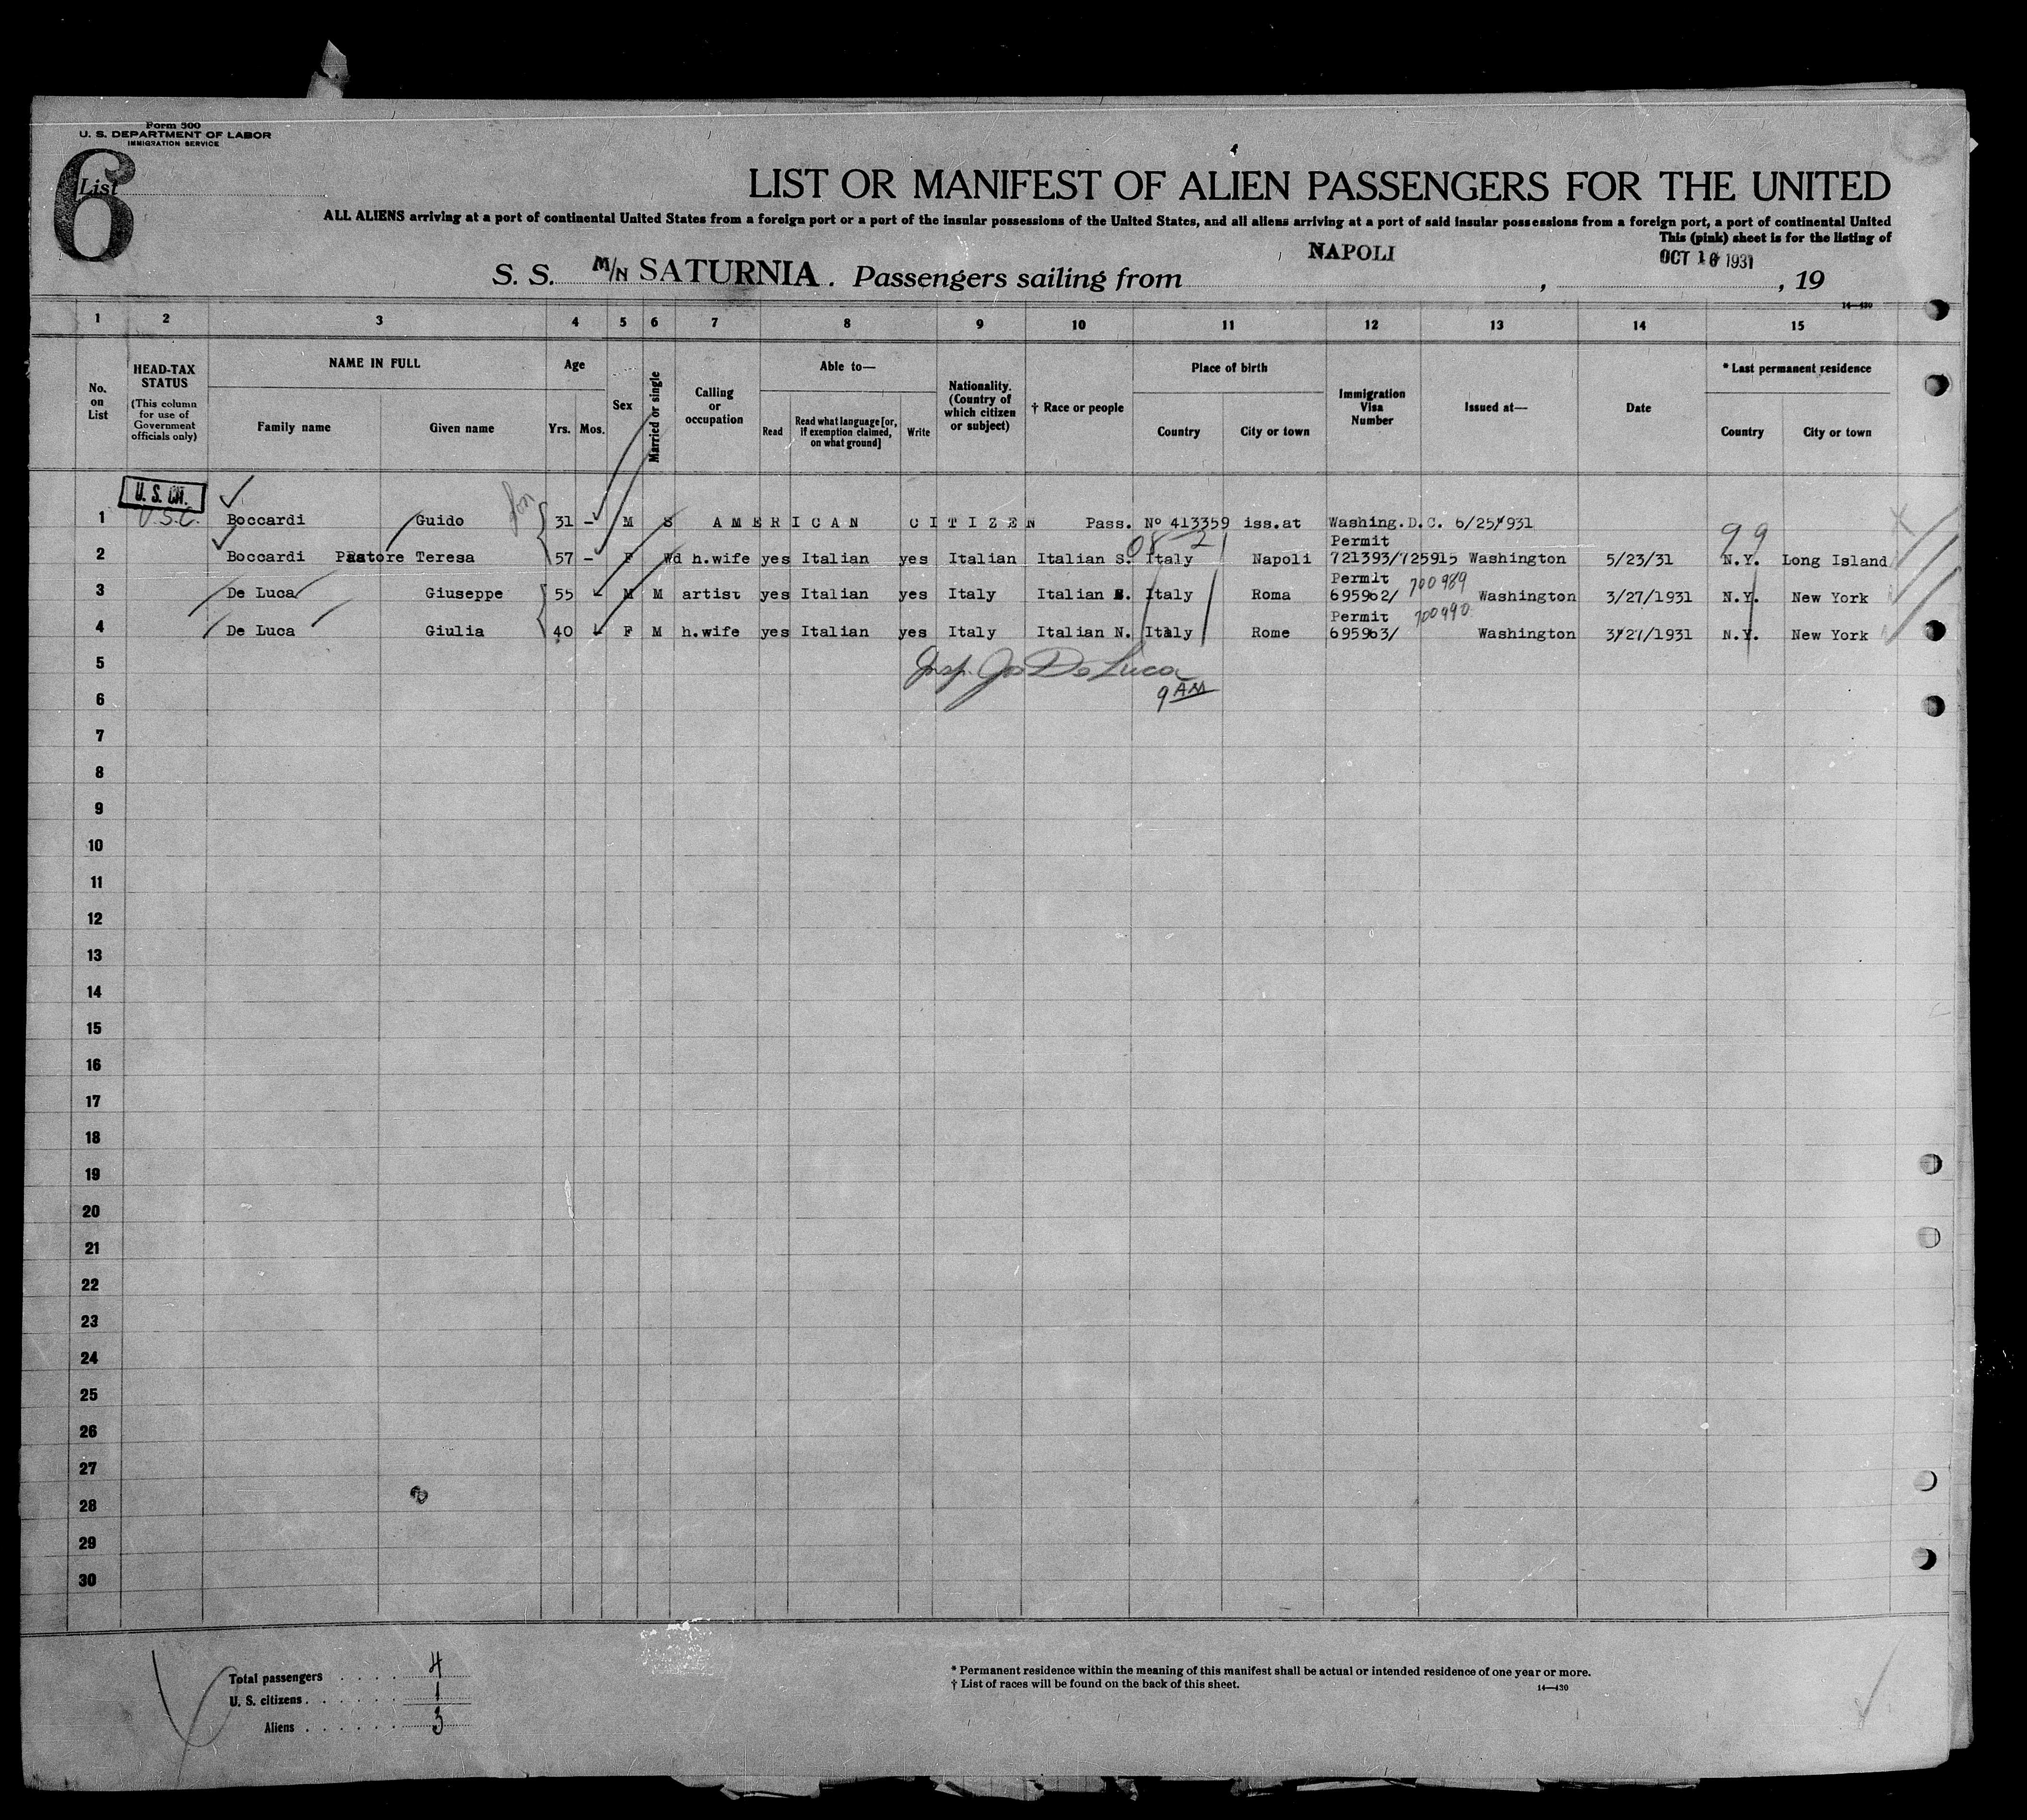 Form 500
U. S. DEPARTMENT OF LABOR
IMMIGRATION SERVICE
6
List
LIST OR MANIFEST OF ALIEN PASSENGERS FOR THE UNITED
ALL ALIENS arriving at a port of continental United States from a foreign port or a port of the insular possessions of the United States, and all aliens arriving at a port of said insular possessions from a foreign port, a port of continental United
This (pink) sheet is for the listing of
S. S. M/N SATURNIA. Passengers sailing from NAPOLI, OCT 16 1931, 19
14—430
1 2 3 4 5 6 7 8 9 10 11 12 13 14 15
No. on List
HEAD-TAX STATUS (This column for use of Government officials only)
NAME IN FULL
Family name Given name
Age
Yrs. Mos.
Sex
Married or single
Calling or occupation
Able to—
Read Read what language [or, if exemption claimed, on what ground] Write
Nationality. (Country of which citizen or subject)
† Race or people
Place of birth
Country City or town
Immigration Visa Number
Issued at—
Date
* Last permanent residence
Country City or town
U. S. CIT.
1 U.S.C. Boccardi Guido son 31 - M S AMERICAN CITIZEN Pass. Nº 413359 iss.at Washing.D.C. 6/25/931
Permit
99
2 Boccardi Pastore Teresa 57 - F Wd h.wife yes Italian yes Italian Italian S. Italy Napoli 721393/725915 Washington 5/23/31 N.Y. Long Island
Permit 700989
3 De Luca Giuseppe 55 M M artist yes Italian yes Italy Italian S. Italy Roma 695962/ Washington 3/27/1931 N.Y. New York
Permit 700990
4 De Luca Giulia 40 F M h.wife yes Italian yes Italy Italian N. Italy Rome 695963/ Washington 3/27/1931 N.Y. New York
5 Insp. Jos De Luca
6 9 AM
7
8
9
10
11
12
13
14
15
16
17
18
19
20
21
22
23
24
25
26
27
28
29
30
Total passengers . . . . 4
U. S. citizens . . . . . . 1
Aliens . . . . . . 3
* Permanent residence within the meaning of this manifest shall be actual or intended residence of one year or more.
† List of races will be found on the back of this sheet.
14—430